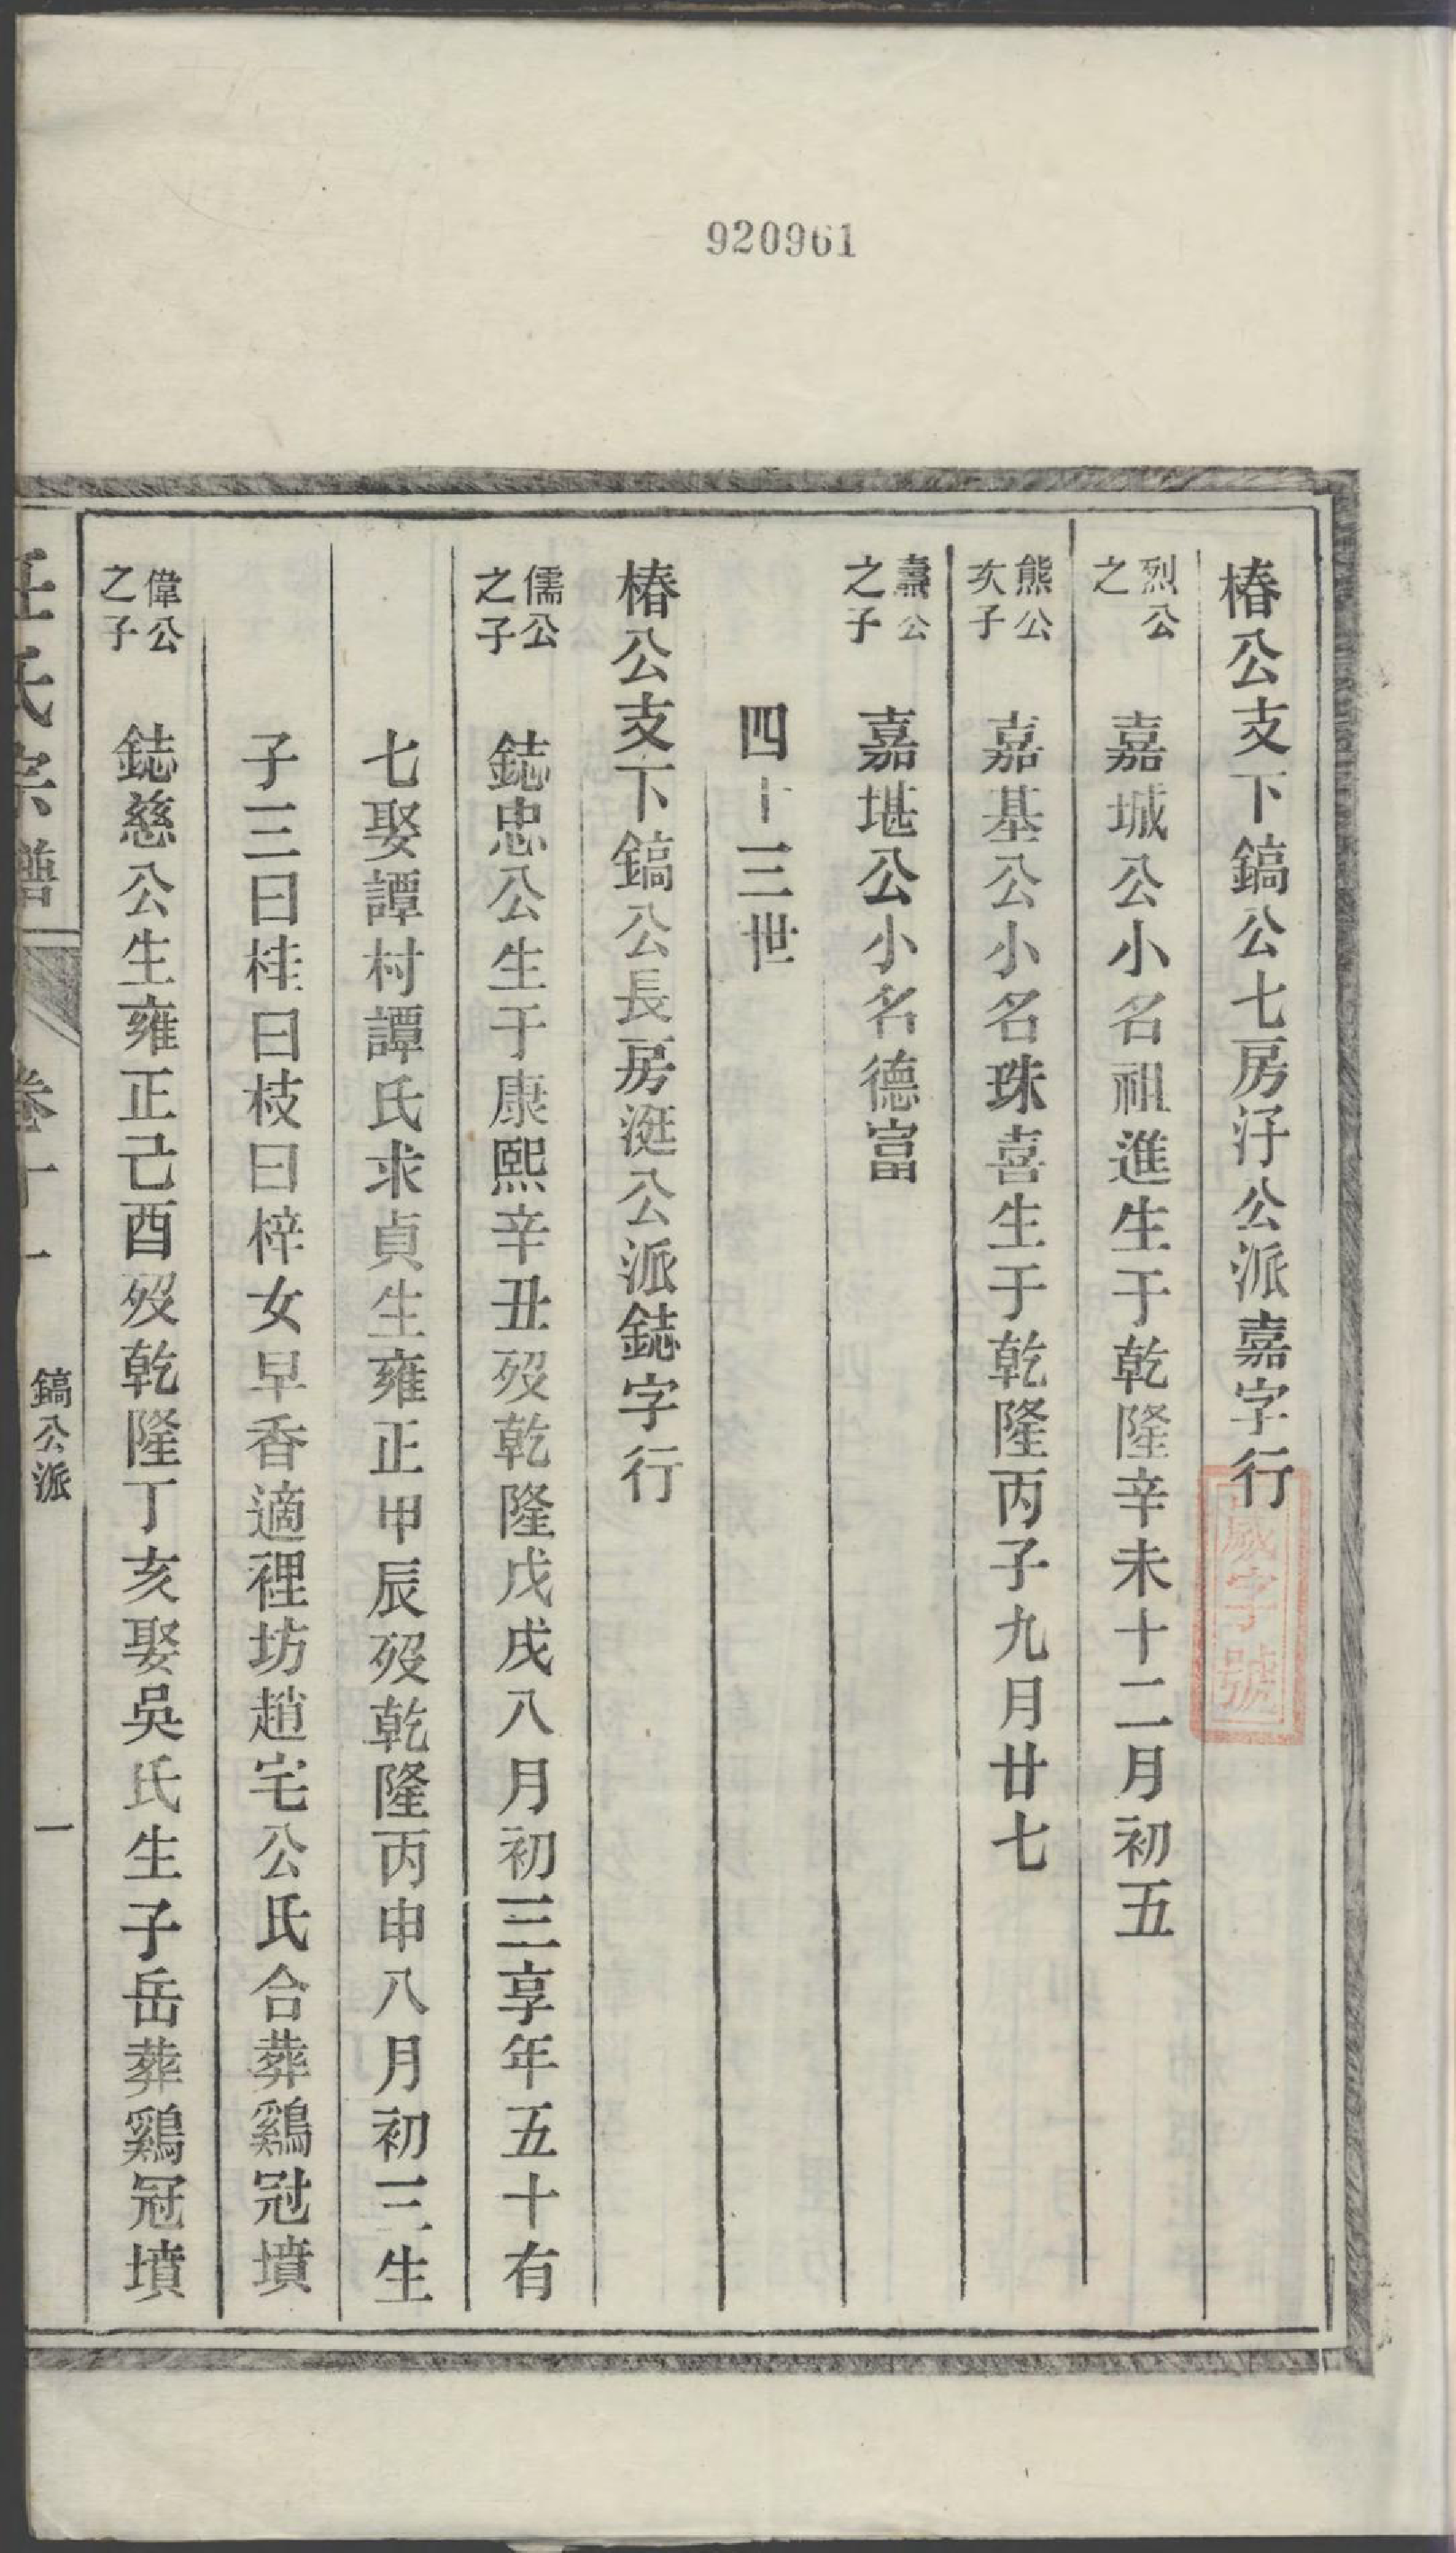 920961
椿公支下鎬公七房汿公派嘉字行
烈公之 嘉堿公小名祖進生于乾隆辛未十二月初五
熊公次子 嘉基公小名珠喜生于乾隆丙子九月廿七
燾公之子 嘉堪公小名德富
四十三世
椿公支下鎬公長房涎公派鋕字行
儒公之子 鋕忠公生于康熙辛丑殁乾隆戊戌八月初三享年五十有
七娶譚村譚氏求貞生雍正甲辰殁乾隆丙申八月初三生
子三曰桂曰枝曰梓女早香適裡坊趙宅公氏合葬鷄冠墳
偉公之子 鋕慈公生雍正己酉殁乾隆丁亥娶吳氏生子岳葬鷄冠墳
氏宗譜 卷十一 鎬公派 一
字號